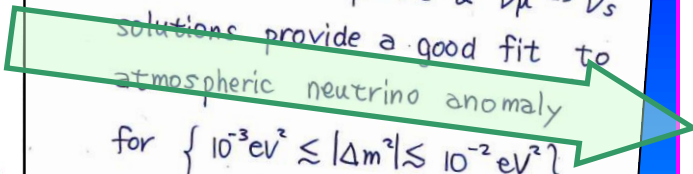 νμ → νs
solutions provide a good fit to
atmospheric neutrino anomaly
for { 10⁻³eV² ≤ |Δm²| ≤ 10⁻²eV² }